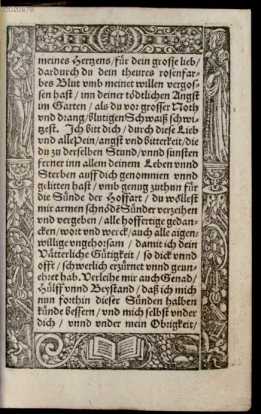 meines Hertzens/ für dein grosse lieb/
dardurch du dein theures rosenfar-
bes Blut vmb meinet willen vergos-
sen hast/ inn deiner tödtlichen Angst
im Garten/ als du vor grosser Noth
vnd drang/ blutigen Schwaiß schwi-
tzest. Ich bitt dich/ durch diese Lieb
vnd alle Pein/ angst vnd bitterkeit/ die
du zu derselben Stund/ vnnd sunsten
ferner inn allem deinem Leben vnnd
Sterben auff dich genommen vnnd
gelitten hast/ vmb genug zuthun für
die Sünde der Hoffart/ du wöllest
mir armen schnöde Sünder verzeihen
vnd vergeben/ alle hoffertige gedan-
cken/ wort vnd werck/ auch alle aigen-
willige vngehorsam/ damit ich dein
Vätterliche Gütigkeit/ so dick vnnd
offt/ schwerlich erzürnet vnnd geun-
ehret hab. Verleihe mir auch Genad/
Hülff vnnd Beystand/ daß ich mich
nun forthin dieser Sünden halben
künde bessern/ vnd mich selbst vnder
dich/ vnnd vnder mein Obrigkeit/